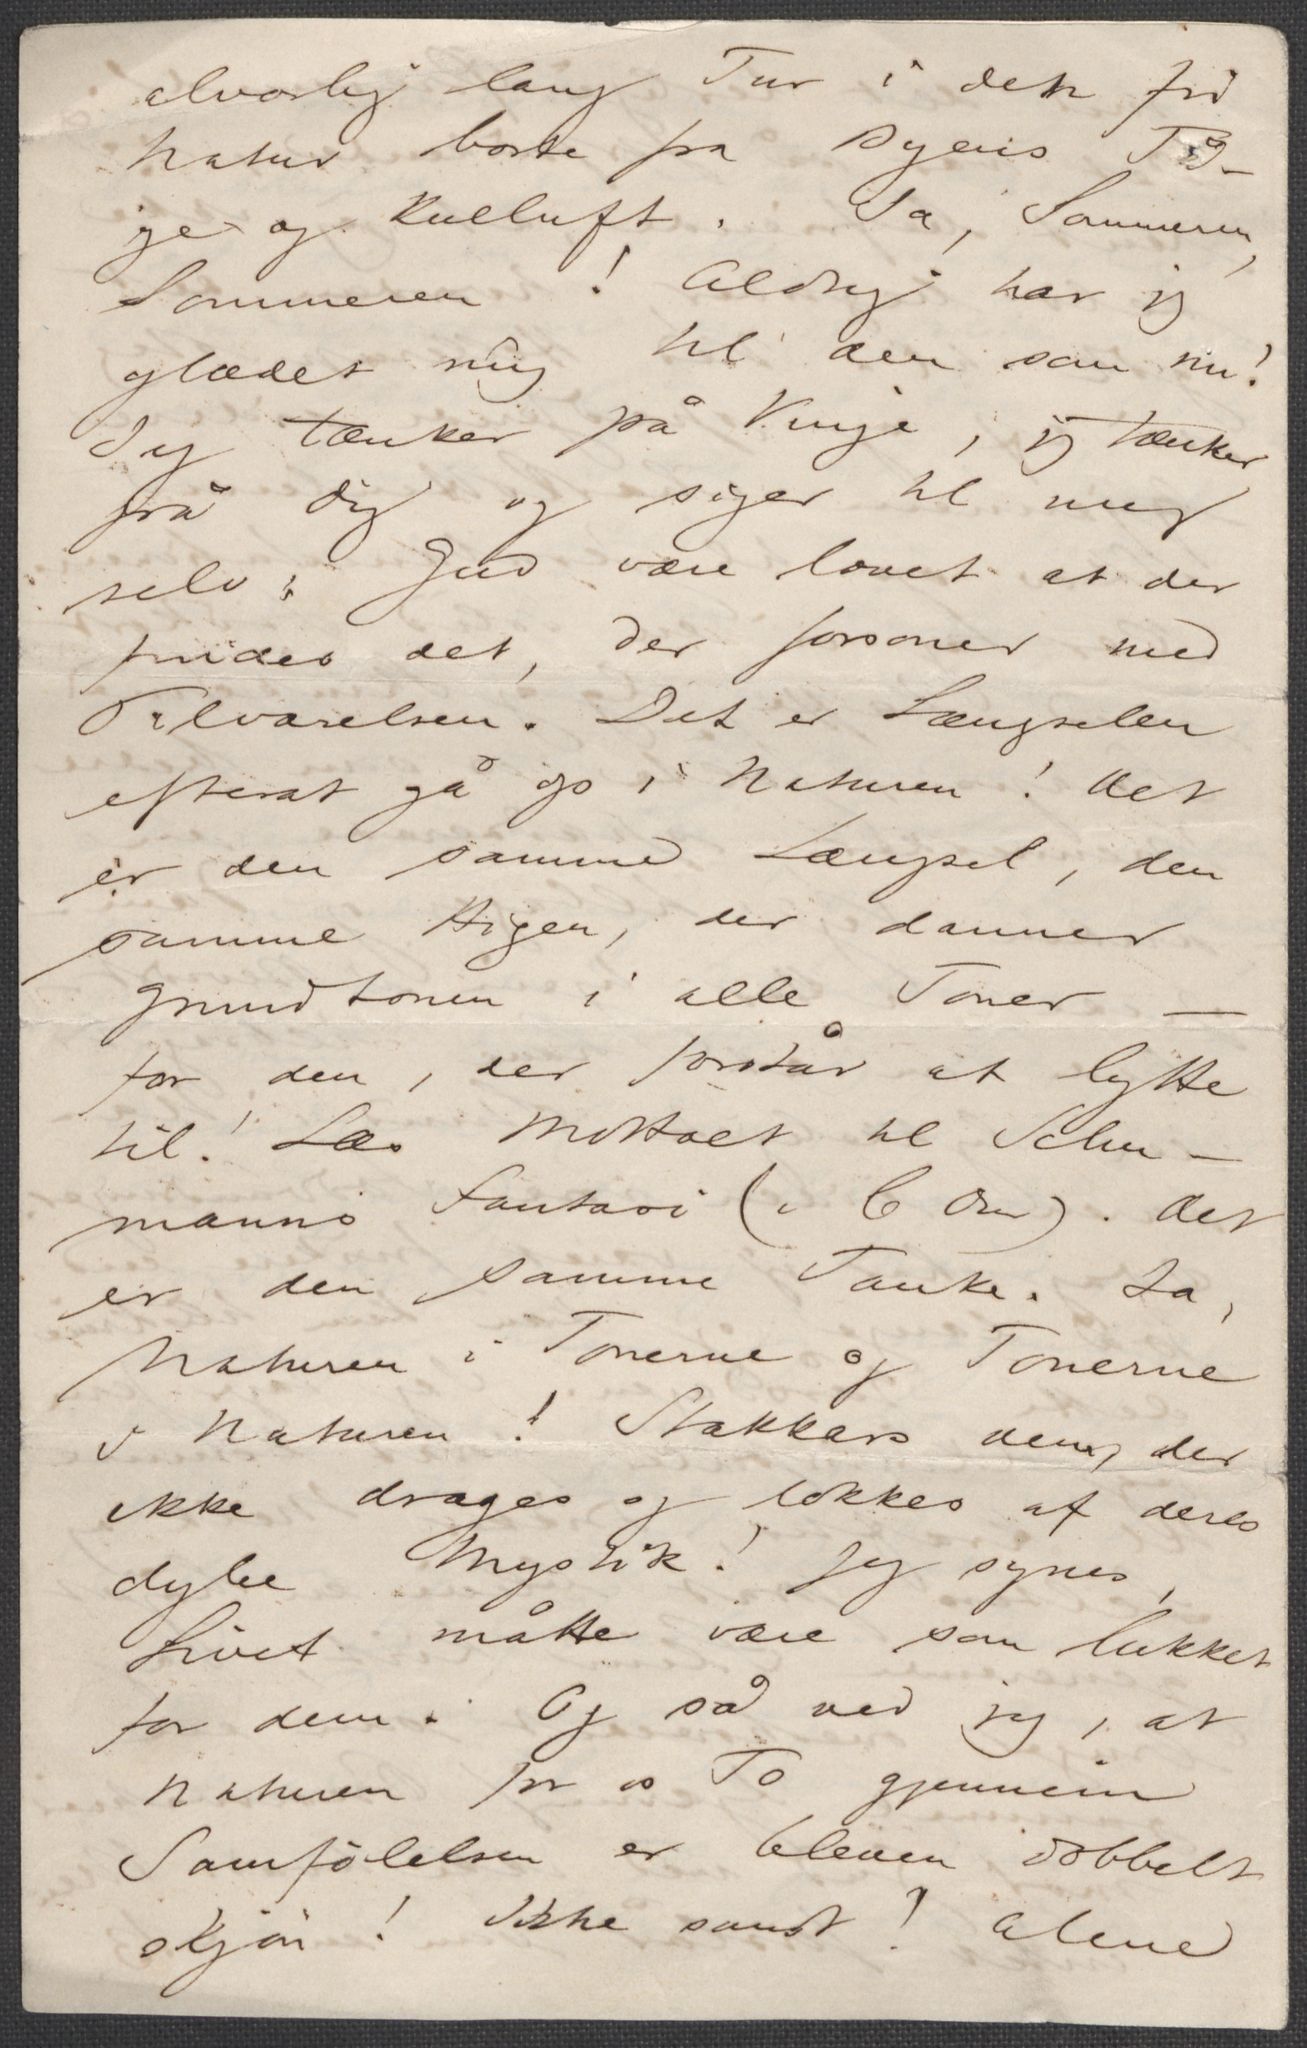 alvorlig lang Tur i den fri
Natur borte fra Byens Tå-
ge og Kulluft. Ja, Sommeren,
Sommeren! Aldrig har jeg
glædet mig til den som nu!
Jeg tænker på Vinje, jeg tænker
på dig og siger til mig
selv: Gud være lovet at der
findes det, der forsoner med
Tilværelsen. Det er Længselen
efterat gå op i Naturen! Det
er den samme Længsel, den
samme Higen, der danner
Grundtonen i alle Toner —
for den, der forstår at lytte
til! Læs Mottoet til Schu-
manns Fantasi (i C Dur). Det
er den samme Tanke. Ja,
Naturen i Tonerne og Tonerne
i Naturen! Stakkars dem, der
ikke drages og lokkes af deres
dybe Mystik! Jeg synes,
Livet måtte være som lukket
for dem. Og så ved jeg, at
Naturen for os To gjennem
Samfölelsen er bleven dobbelt
skjön! Ikke sandt! Alene